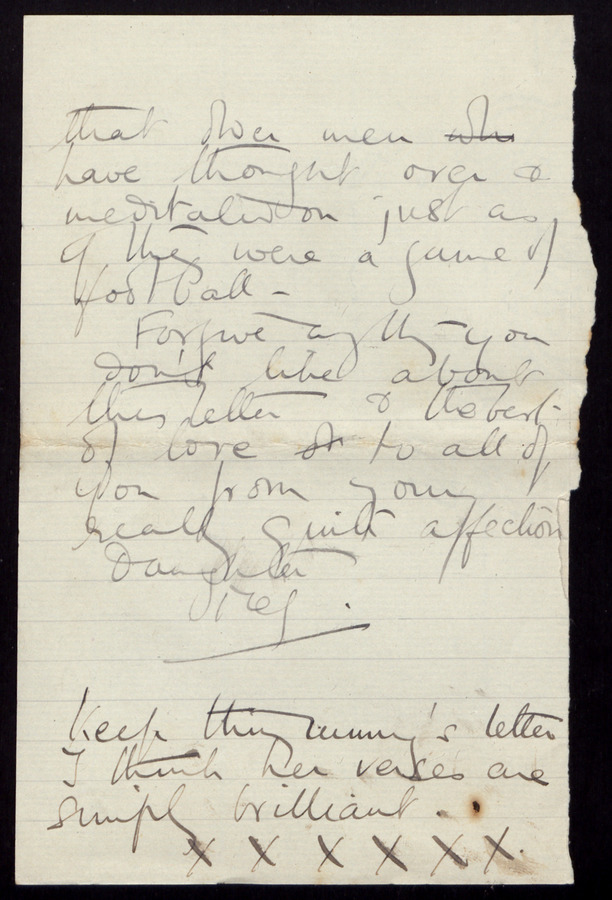 that other men who
have thought over &
meditated on just as
if they were a game of
football -
Forgive anything you
don't like about
this letter & the best
of love to all of
you from your
really quite affection
Daughter
Meg.
Keep this letter
I think her verses are
simply brilliant.
x x x x x x.